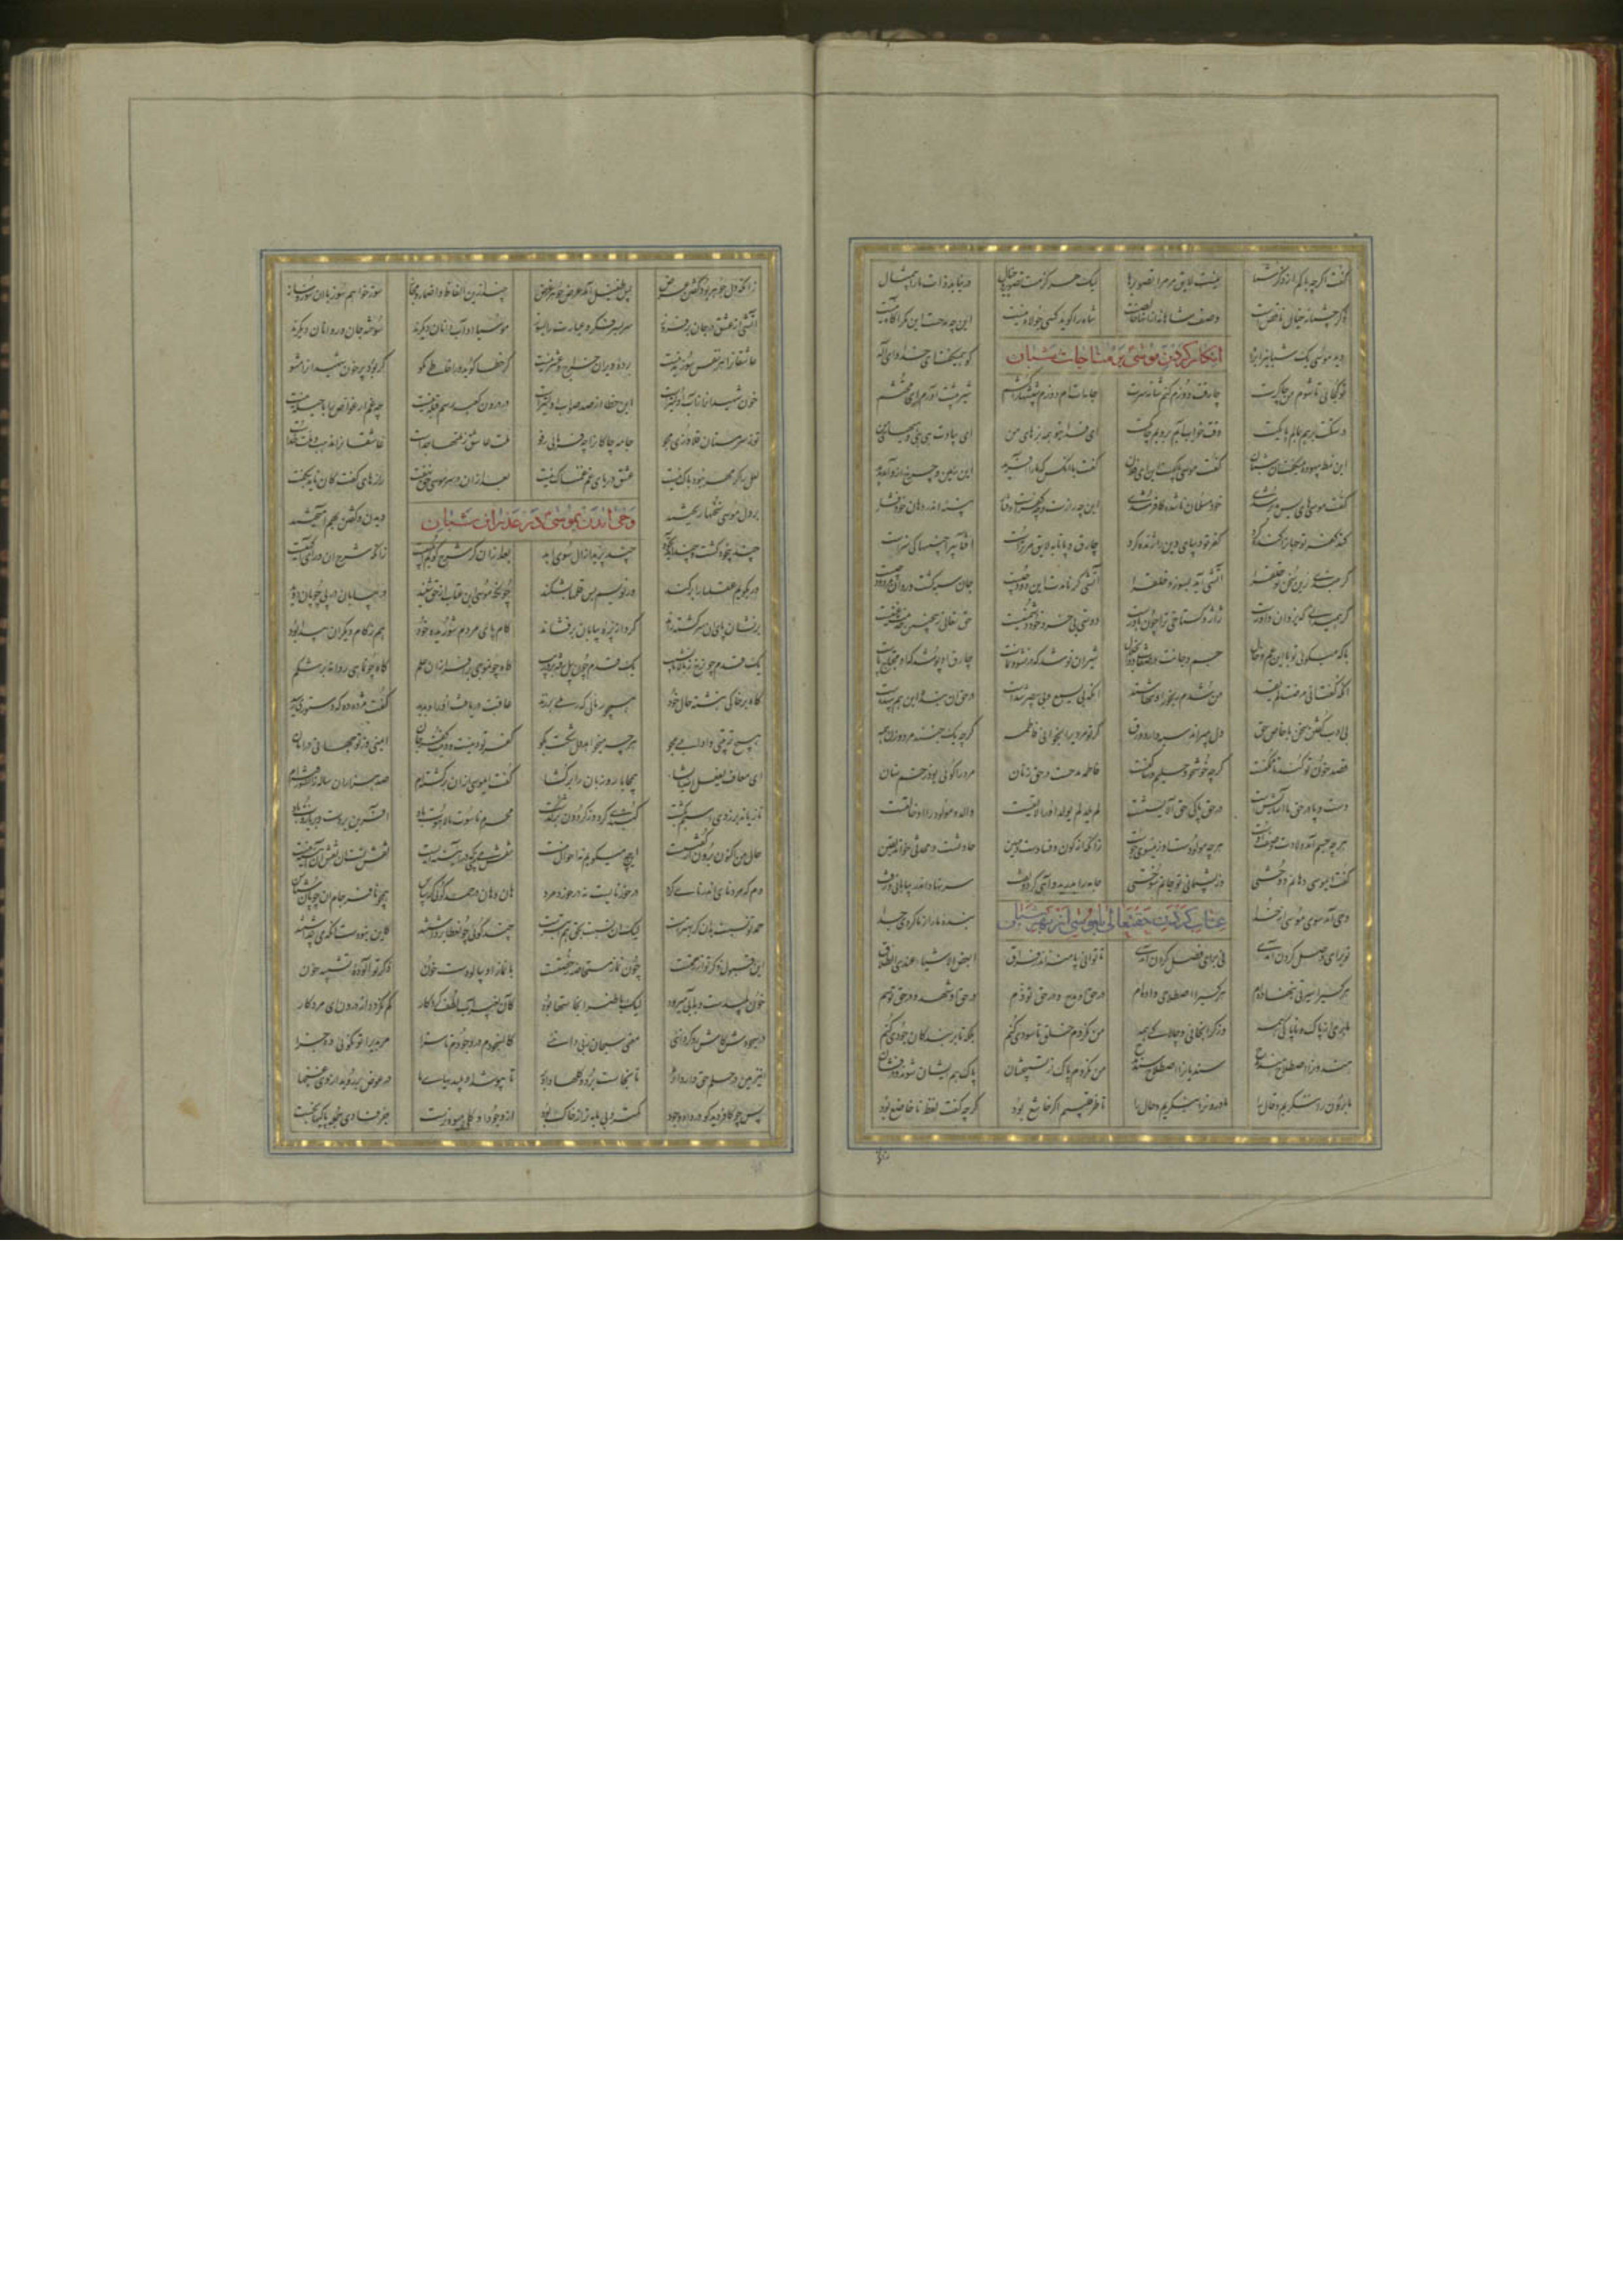 گفت اگرچه پاکم از ذکر شما نیست لایق مر مرا تصویرها لیک هرگز مست تصویر و خیال در نیابد ذات ما را بی مثال
ذکر جسمانه خیال ناقص است وصف شاهانه از آنها خالص است شاه را گوید کسی جولاه نیست این چه مدحست این مگر آگاه نیست
دید موسی یک شبانی را براه کو همیگفت ای خدا و ای اله
انکار کردن موسی بر مناجات شبان
تو کجائی تا شوم من چاکرت چارقت دوزم کنم شانه سرت جامه ات دوزم شپشهایت کشم شیر پیشت آورم ای محتشم
دستکت بوسم بمالم پایکت وقت خواب آید بروبم جایکت ای فدای تو همه بزهای من ای بیادت هی هی و هیهای من
این نمط بیهوده میگفت آن شبان گفت موسی با کیستت ای فلان گفت با آنکس که ما را آفرید این زمین و چرخ ازو آمد پدید
گفت موسی های بس مدبر شدی خود مسلمان ناشده کافر شدی این چه ژاژست و چه کفرست و فشار پنبه اندر دهان خود فشار
گند کفر تو جهان را گنده کرد کفر تو دیبای دین را ژنده کرد چارق و پاتابه لایق مر تراست آفتابی را چنینها کی سزاست
گر نبندی زین سخن تو حلق را آتشی آید بسوزد خلق را آتشی گر نامدست این دود چیست جان سیه گشت و روان مردود چیست
گر همی دانی که یزدان داورست ژاژ و گستاخی ترا چون باورست دوستی بی خرد خود دشمنیست حق تعالی زین چنین خدمت غنیست
با که میگوئی تو این با عم و خال جسم و حاجت در صفات ذوالجلال شیر او نوشد که در نشو و نماست چارق او پوشد که او محتاج پاست
آنکه گفت انی مرضت لم تعد من شدم رنجور او تنها نشد آنکه بی یسمع و بی یبصر شدست در حق آن بنده این هم بیهدست
بی ادب گفتن سخن با خاص حق دل بمیراند سیه دارد ورق گر تو مردی را بخوانی فاطمه گرچه یک جنسند مرد و زن همه
قصد خون تو کند تا ممکنست گرچه خوشخو و حلیم و ساکنست فاطمه مدحست در حق زنان مرد را گوئی بود زخم سنان
دست و پا در حق ما آسایش است در حق پاکی حق آلایشست لم یلد لم یولد او را لایقست والد و مولود را او خالقست
هر چه جسم آمد ولادت وصف اوست هر چه مولودست او زین سوی جوست زانکه از کون و فسادست و مهین حادثست و محدثی خواهد یقین
گفت ای موسی دهانم دوختی وز پشیمانی تو جانم سوختی جامه را بدرید و آهی کرد و تفت سر نهاد اندر بیابانی و رفت
وحی آمد سوی موسی از خدا بنده ما را ز ما کردی جدا
عتاب کردن حقتعالی با موسی از بهر شبان
تو برای وصل کردن آمدی نی برای فصل کردن آمدی تا توانی پا منه اندر فراق ابغض الاشیاء عندی الطلاق
هر کسی را سیرتی بنهاده ام هر کسی را اصطلاحی داده ام در حق او مدح و در حق تو ذم در حق او شهد و در حق تو سم
ما بری از پاک و ناپاکی همه وز گرانجانی و چالاکی همه من نکردم خلق تا سودی کنم بلکه تا بر بندگان جودی کنم
هندیان را اصطلاح هند مدح سندیان را اصطلاح سند مدح من نکردم پاک از تسبیحشان پاک هم ایشان شوند و درفشان
ما برون را ننگریم و قال را ما درون را بنگریم و حال را ناظر قلبیم اگر خاشع بود گرچه گفت لفظ ناخاضع بود
زانکه دل جوهر بود گفتن عرض پس طفیل آمد عرض جوهر غرض چند ازین الفاظ و اضمار و مجاز سوز خواهم سوز با آن سوز ساز
آتشی از عشق در جان برفروز سر بسر فکر و عبارت را بسوز موسیا آداب دانان دیگرند سوخته جان و روانان دیگرند
عاشقان را هر نفس سوزیدنیست بر ده ویران خراج و عشر نیست گر خطا گوید ورا خاطی مگو گر بود پر خون شهید او را مشو
خون شهیدان را ز آب اولیترست این خطا از صد صواب اولیترست در درون کعبه رسم قبله نیست چه غم ار غواص را پاچیله نیست
تو ز سرمستان قلاوزی مجو جامه چاکان را چه فرمائی رفو ملت عاشق ز ملتها جداست عاشقان را مذهب و ملت خداست
لعل را گر مهر نبود باک نیست عشق در دریای غم غمناک نیست بعد از آن در سر موسی حق نهفت رازهای گفت کان ناید بگفت
بر دل موسی سخنها ریختند دیدن و گفتن بهم آمیختند
وحی آمدن بموسی در عذر آن شبان
چند بیخود گشت و چند آمد بخود چند پرید از ازل سوی ابد بعد از آن گر شرح گویم ابلهیست زانکه شرح آن ورای آگهیست
ور بگویم عقلها را بر کند ور نویسم بس قلمها بشکند چونکه موسی این عتاب از حق شنید در بیابان در پی چوپان دوید
بر نشان پای آن سرگشته راند گرد از پره بیابان برفشاند گام پای مردم شوریده خود هم ز گام دیگران پیدا بود
یک قدم چون رخ ز بالا تا نشیب یک قدم چون پیل رفته بر وریب گاه چون موجی بر افرازان علم گاه چون ماهی روانه بر شکم
گاه بر خاکی نبشته حال خود همچو رمالی که رملی بر زند عاقبت دریافت او را و بدید گفت مژده ده که دستوری رسید
هیچ ترتیبی و آدابی مجو هر چه میخواهد دل تنگت بگو کفر تو دینست و دینت نور جان ایمنی وز تو جهانی در امان
ای معاف یفعل الله ما یشا بی محابا رو زبان را بر گشا گفت ای موسی از آن بگذشته ام صد هزاران ساله زان سو رفته ام
تازیانه بر زدی اسبم بگشت گنبدی کرد و ز گردون بر گذشت محرم ناسوت ما لاهوت باد آفرین بر دست و بر بازوت باد
حال من اکنون برون از گفتنست اینچه میگویم نه احوال منست نقش می بینی که در آئینه ایست نقش تست آن نقش آن آئینه نیست
دم که مرد نائی اندر نای کرد در خور نایست نه در خورد مرد هان و هان گر حمد گوئی گر سپاس همچو نافرجام آن چوپان شناس
حمد تو نسبت بدان گر بهترست لیک آن نسبت بحق هم ابترست چند گوئی چون غطا برداشتند کاین نبودست آنکه می پنداشتند
این قبول ذکر تو از رحمتست چون نماز مستحاضه رخصتست با نماز او بیالودست خون ذکر تو آلوده تشبیه و چون
خون پلیدست و بآبی میرود لیک باطن را نجاستها بود کان بغیر آب لطف کردگار کم نگردد از درون ای مرد کار
در سجودت کاش رو گردانئی معنی سبحان ربی دانئی کای سجودم چون وجودم ناسزا مر بدی را تو نکوئی ده جزا
این زمین از حلم حق دارد اثر تا نجاست برد و گلها داد بر تا بپوشد او پلیدیهای ما در عوض بر روید از وی غنچها
پس چو کافر دید کو در داد و جود کمتر و بی مایه تر از خاک بود از وجود او گل و میوه نرست جز فساد جمله پاکیها نجست